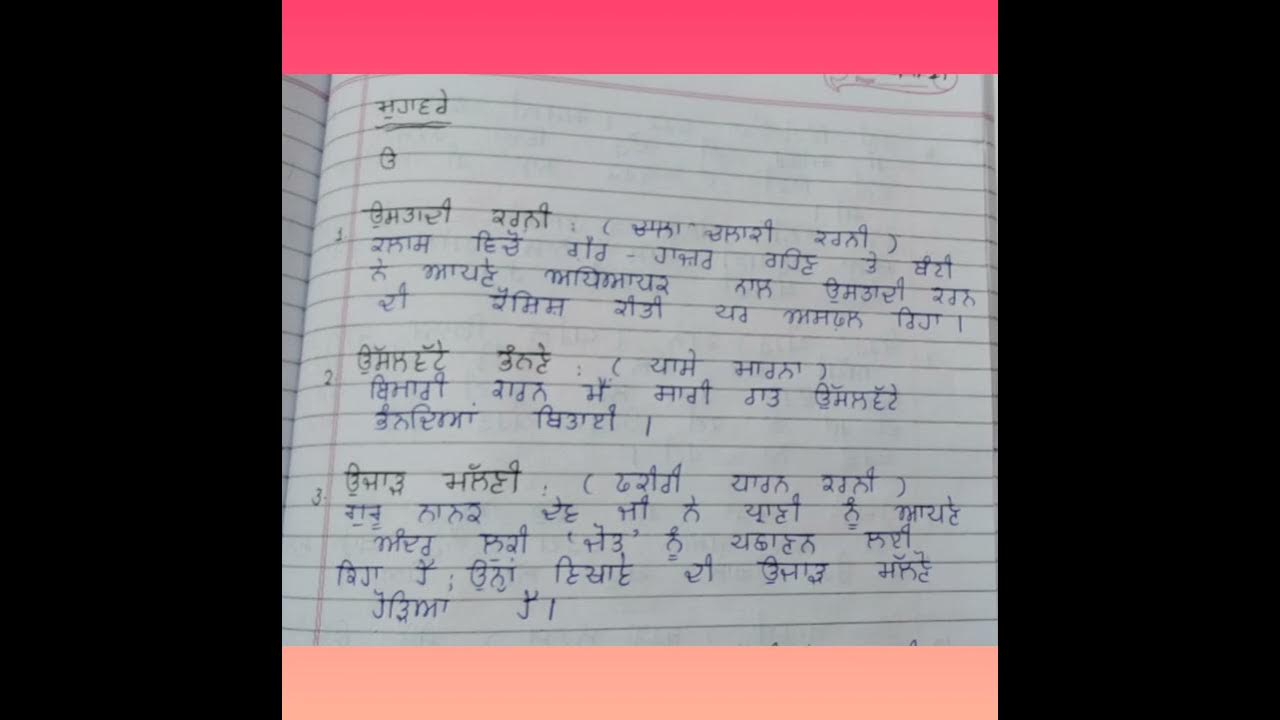 ਮੁਹਾਵਰੇ
ੳ
1. ਉਸਤਾਦੀ ਕਰਨੀ : ( ਚਾਲਾਕੀ ਕਰਨੀ )
ਕਲਾਸ ਵਿਚੋਂ ਗ਼ੈਰ - ਹਾਜ਼ਰ ਰਹਿਣ ਤੇ ਬੰਟੀ
ਨੇ ਆਪਣੇ ਅਧਿਆਪਕ ਨਾਲ ਉਸਤਾਦੀ ਕਰਨ
ਦੀ ਕੋਸ਼ਿਸ਼ ਕੀਤੀ ਪਰ ਅਸਫ਼ਲ ਰਿਹਾ ।
2. ਉੱਸਲਵੱਟੇ ਭੰਨਣੇ : ( ਪਾਸੇ ਮਾਰਨਾ )
ਬਿਮਾਰੀ ਕਾਰਨ ਮੈਂ ਸਾਰੀ ਰਾਤ ਉੱਸਲਵੱਟੇ
ਭੰਨਦਿਆਂ ਬਿਤਾਈ ।
3. ਉਜਾੜ ਮੱਲਣੀ : ( ਫਕੀਰੀ ਧਾਰਨ ਕਰਨੀ )
ਗੁਰੂ ਨਾਨਕ ਦੇਵ ਜੀ ਨੇ ਪ੍ਰਾਣੀ ਨੂੰ ਆਪਣੇ
ਅੰਦਰ ਲੁਕੀ 'ਜੋਤ' ਨੂੰ ਪਛਾਣਨ ਲਈ
ਕਿਹਾ ਹੈ ; ਉਨ੍ਹਾਂ ਵਿਖਾਵੇ ਦੀ ਉਜਾੜ ਮੱਲਣੋ
ਹੋੜਿਆ ਹੈ ।